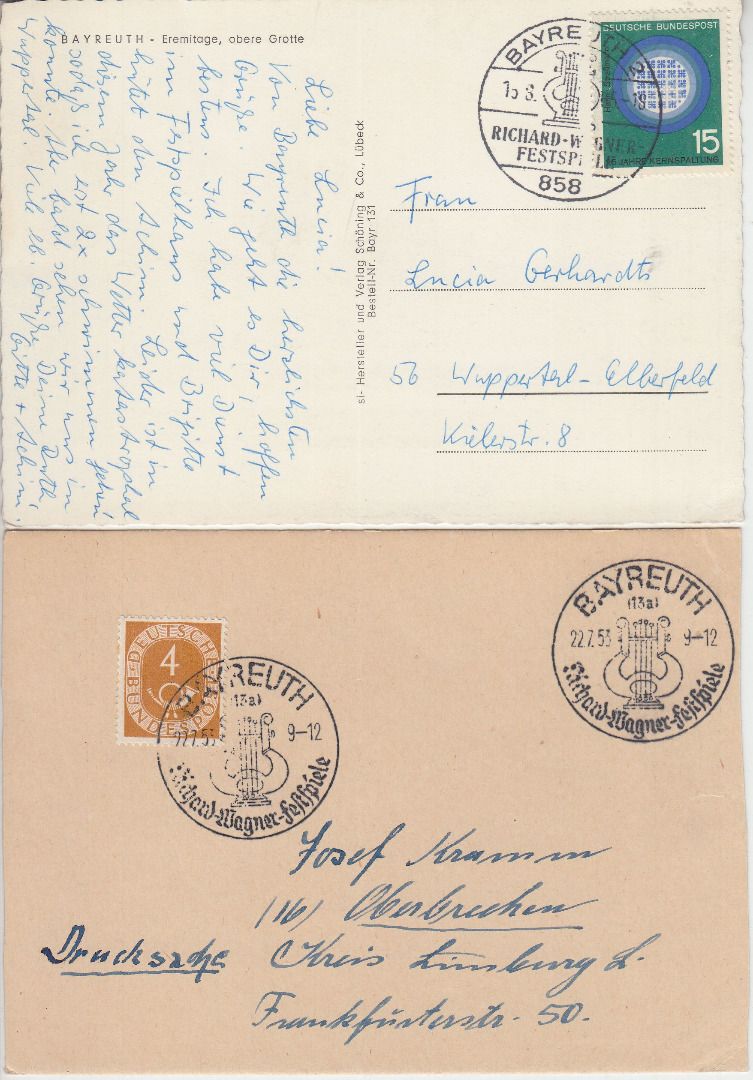 BAYREUTH - Eremitage, obere Grotte
Liebe Lucia!
Von Bayreuth die herzlichsten
Grüße. Wie geht es Dir? hoffen
bestens. Ich habe viel Dienst
im Festspielhaus und Brigitte
hütet den Achim. Leider ist in
diesem Jahr das Wetter katastrophal
sodaß ich erst 2x schwimmen gehen
konnte. Also bald sehen wir uns in
Wuppertal. Viel lb. Grüße Deine Ruth,
Gitte + Achim.
si- Hersteller und Verlag Schöning & Co., Lübeck
Bestell-Nr. Bayr 131
BAYREUTH 2
15 8.
-18
RICHARD-WAGNER-
FESTSPIELE
858
DEUTSCHE BUNDESPOST
15
JAHRE KERNSPALTUNG
Frau
Lucia Gerhardts
56 Wuppertal-Elberfeld
Kielerstr. 8
DEUTSCHE
4
BUNDESPOST
BAYREUTH
(13a)
22.7.53 9-12
Richard-Wagner-Festspiele
BAYREUTH
(13a)
22.7.53 9-12
Richard-Wagner-Festspiele
Josef Kramm
(16) Oberbrechen
Drucksache
Kreis Limburg L.
Frankfurterstr. 50.